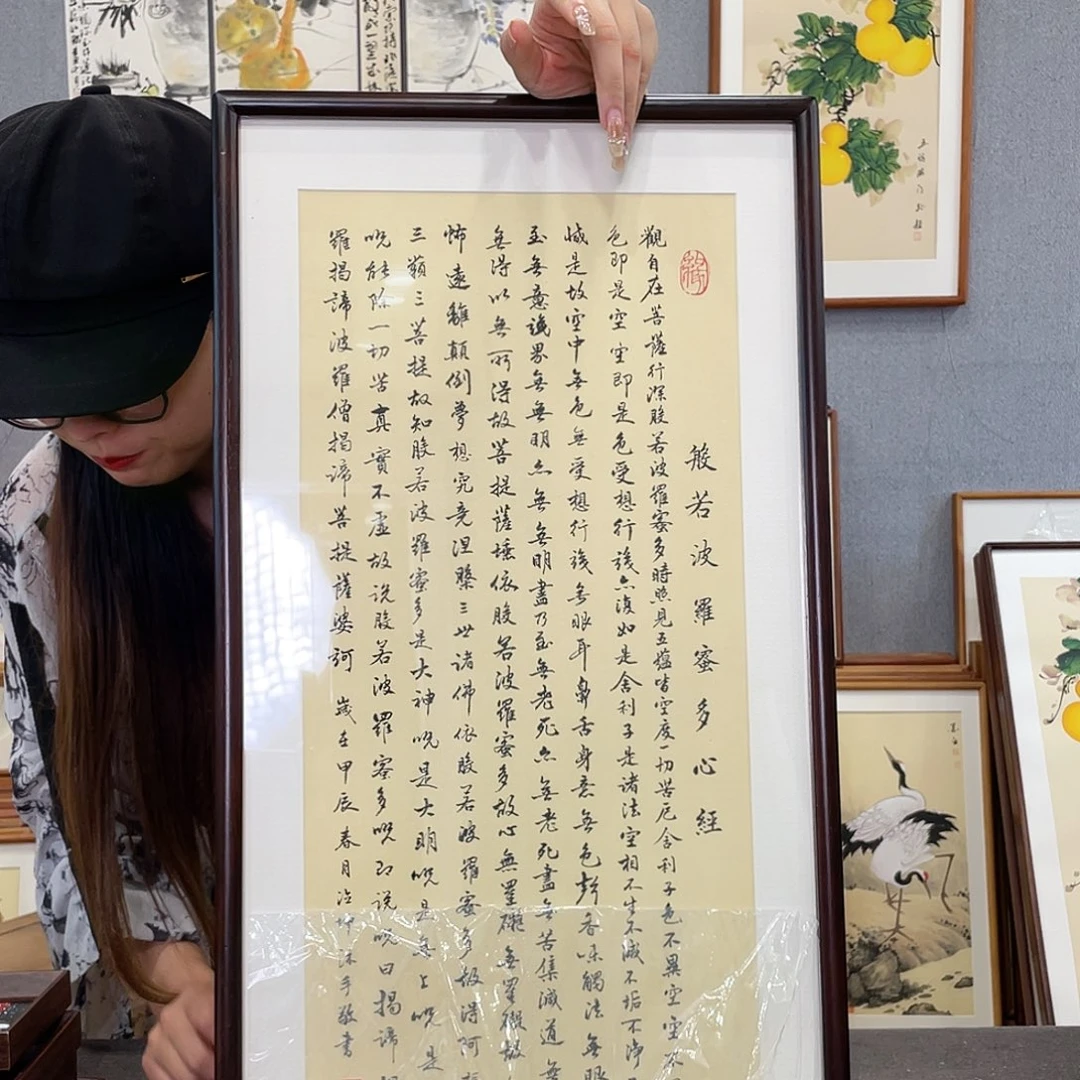 般若波羅蜜多心經
觀自在菩薩行深般若波羅蜜多時照見五蘊皆空度一切苦厄舍利子色不異空空不
色即是空空即是色受想行識亦復如是舍利子是諸法空相不生不滅不垢不淨
減是故空中無色無受想行識無眼耳鼻舌身意無色聲香味觸法無眼
至無意識界無無明亦無無明盡乃至無老死亦無老死盡無苦集滅道無
無得以無所得故菩提薩埵依般若波羅蜜多故心無罣礙無罣礙故
怖遠離顛倒夢想究竟涅槃三世諸佛依般若波羅蜜多故得阿
三藐三菩提故知般若波羅蜜多是大神呪是大明呪是無上呪是
呪能除一切苦真實不虛故說般若波羅蜜多呪即說呪曰揭諦
羅揭諦波羅僧揭諦菩提薩婆訶 歲在甲辰春月沐手敬書